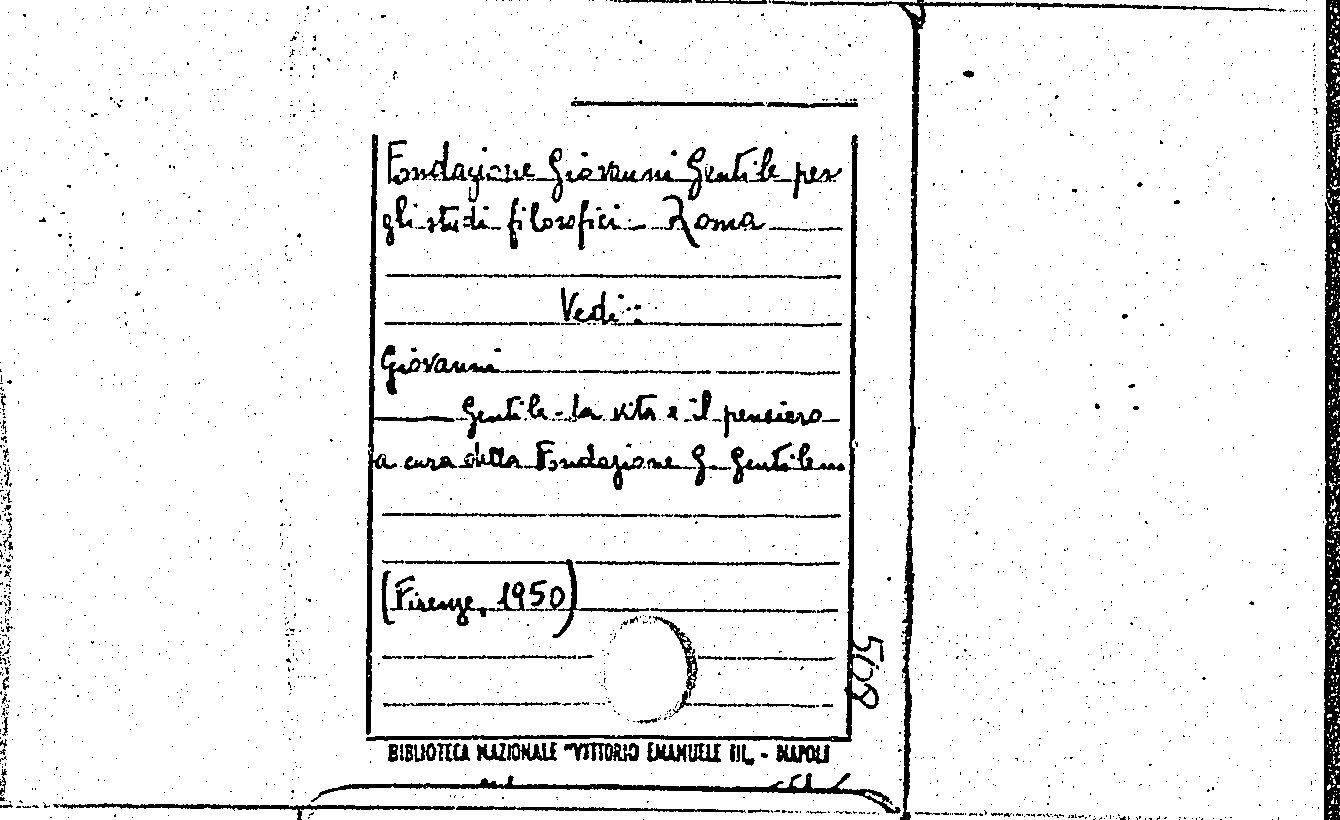 Fondazione Giovanni Gentile per
gli studi filosofici - Roma
Vedi:
Giovanni
Gentile - la vita e il pensiero
a cura della Fondazione G. Gentile...
(Firenze, 1950)
508
BIBLIOTECA NAZIONALE "VITTORIO EMANUELE III„ - NAPOLI